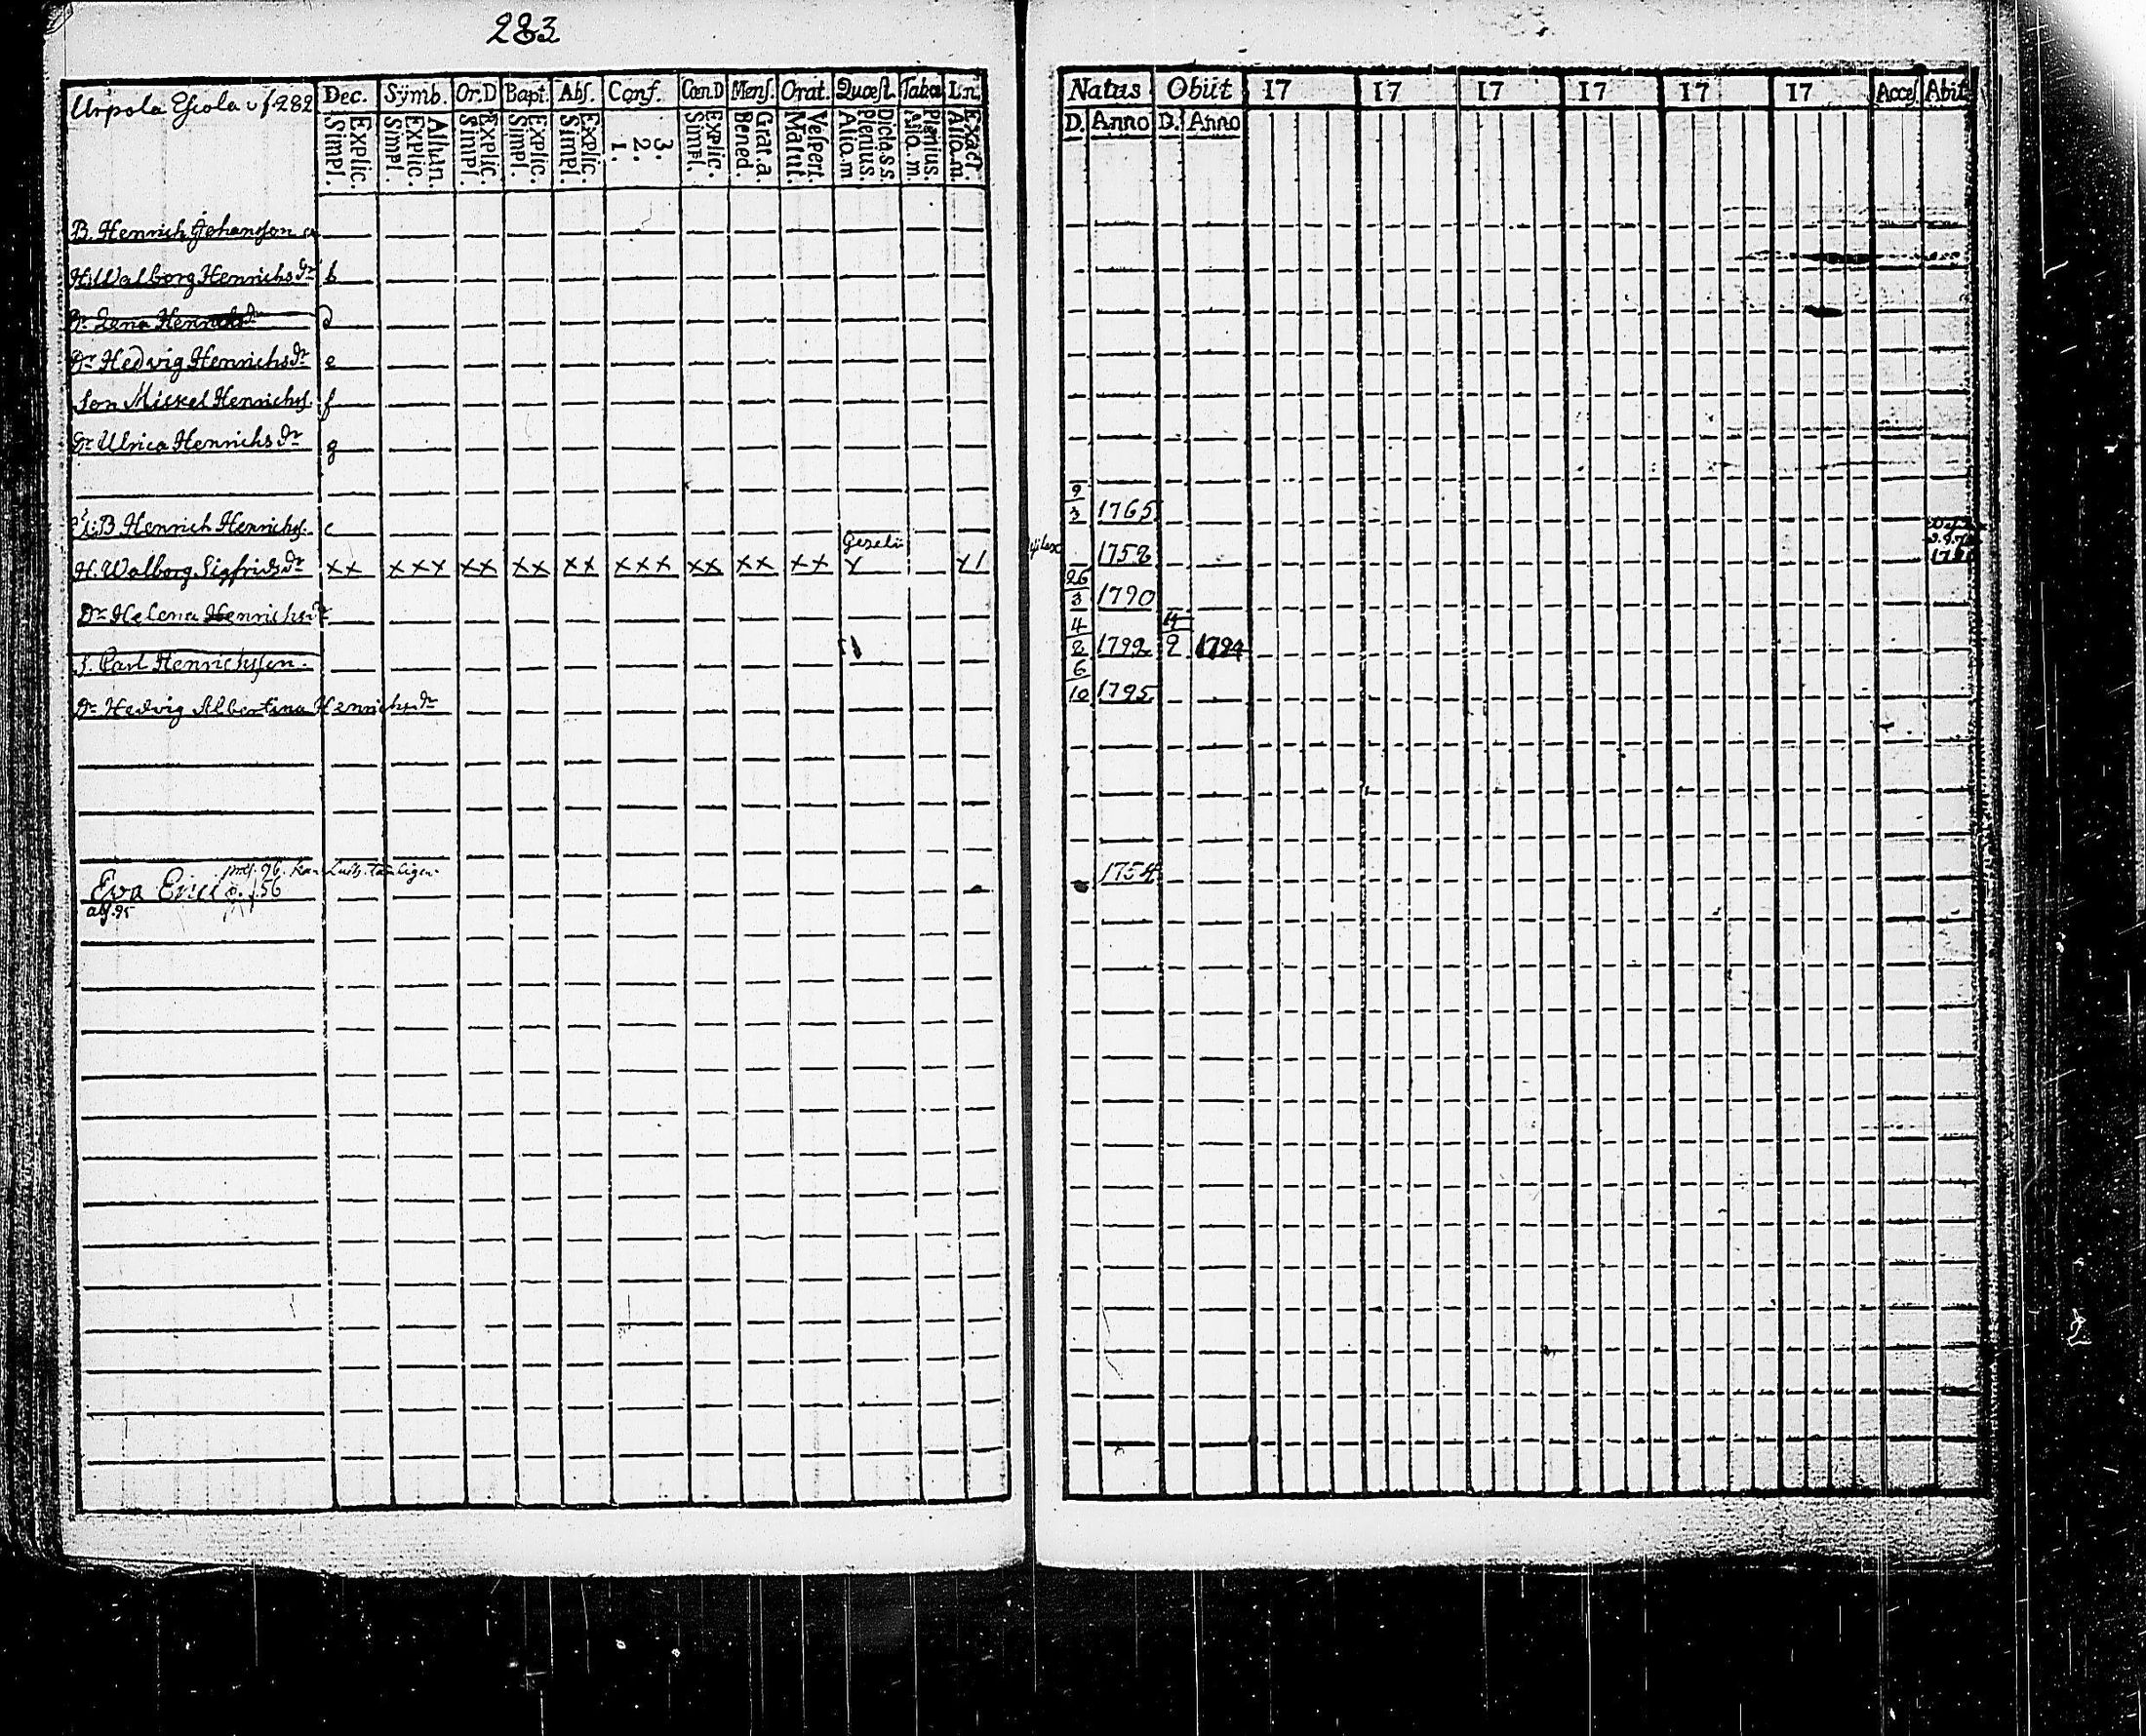 283
Urpola f. 282 Dec. Symb. Or.D Bapt. Abs. Conf. Cœn.D Mens. Orat. Quæst. Tabel Ln.
Simpl. Explic. Simpl. Explic. Athan. Simpl. Explic. Simpl. Explic. Simpl. Explic. 1. 2. 3. Simpl. Explic. Bened. Grat. a. Matut. Vespert. Alio. m. Plenius. Dicta. s. s. Alio. m. Plenius. Alio. m. Exact
B. Henrich Johansson a
H. Walborg Henrichs dr b
Dr Lena Henrichs dr d
Dr Hedvig Henrichs dr e
Son Mickel Henrichs. f
Dr Ulrica Henrichs dr g
B Henrich Henrichs. c
H. Walborg Sigfrids dr xx xxx xx xx xx xxx xx xx xx x x1
Dr Helena Henrichs dr
S. Carl Henrichsson.
Dr Hedvig Albertina Henrichs dr
Eva Erici f. 56
abs. 95
Natus Obiit 17 17 17 17 17 17 Acces. Abit
D. Anno D. Anno
9/3 1765
1758
26/3 1790
4/2 1792 9 1794
6/10 1795
1754